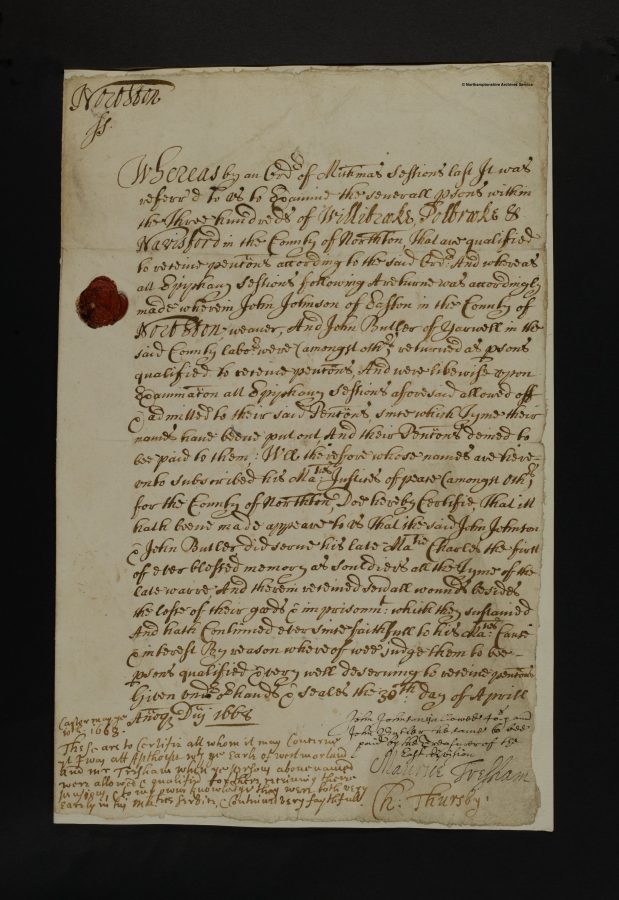 © Northamptonshire Archives Service
Northton
ss.
Whereas by an Ordr of Michmas Sessions last It was
referr'd to us to Examine the severall psons within
the Three hundreds of Willibrooke, Polbrooke &
Navisford in the County of Northton, That are qualified
to receive pencons according to the said Ordr. And whereas
att Epiphany Sessions following A returne was accordingly
made wherein John Johnson of Easton in the County of
Northton weaver, And John Butler of Yarwell in the
said County laborr were (amongst othrs) returned as psons
qualified to receive pencons, And were likewise upon
Examinacon att Epiphany Sessions aforesaid allowed off
& admitted to their said Pencons since which Tyme their
names have beene put out, And their Pencons denied to
bee paid to them: Wee therefore whose names are here-
unto subscribed his Maties Justices of peace (amongst othrs)
for the County of Northton, Doe hereby Certifie, That itt
hath beene made appeare to us That the said John Johnson
& John Butler did serve his late Matie Charles the first
of ever blessed memory as souldiers all the Tyme of the
late warre, And therein received severall wounds besides
the losse of their goods & imprisonmt which they sustained
And hath Continued ever since faithfull to his Maties Cause
& interest By reason whereof wee judge them to bee
psons qualified & very well deserving to receive pencons
Given undr or hands & seales the 30th day of Aprill
Anoq Dni 1668
John Johnson is allowed 40s and
John Buttler the same to bee
paid by the Treasurer of the
East Division
Maurice Tresham
Ch: Thursby
may ye
1668.
These are to Certifie all whom it may Concerne
yt I was att Apthorpe wt ye Earle of westmorland
and mr Tresham when ye persons above named
were allowed & qualified for there receiving there
pensions, & to my owne knowledge they were both very
in his maties servis & Continued very faythfull